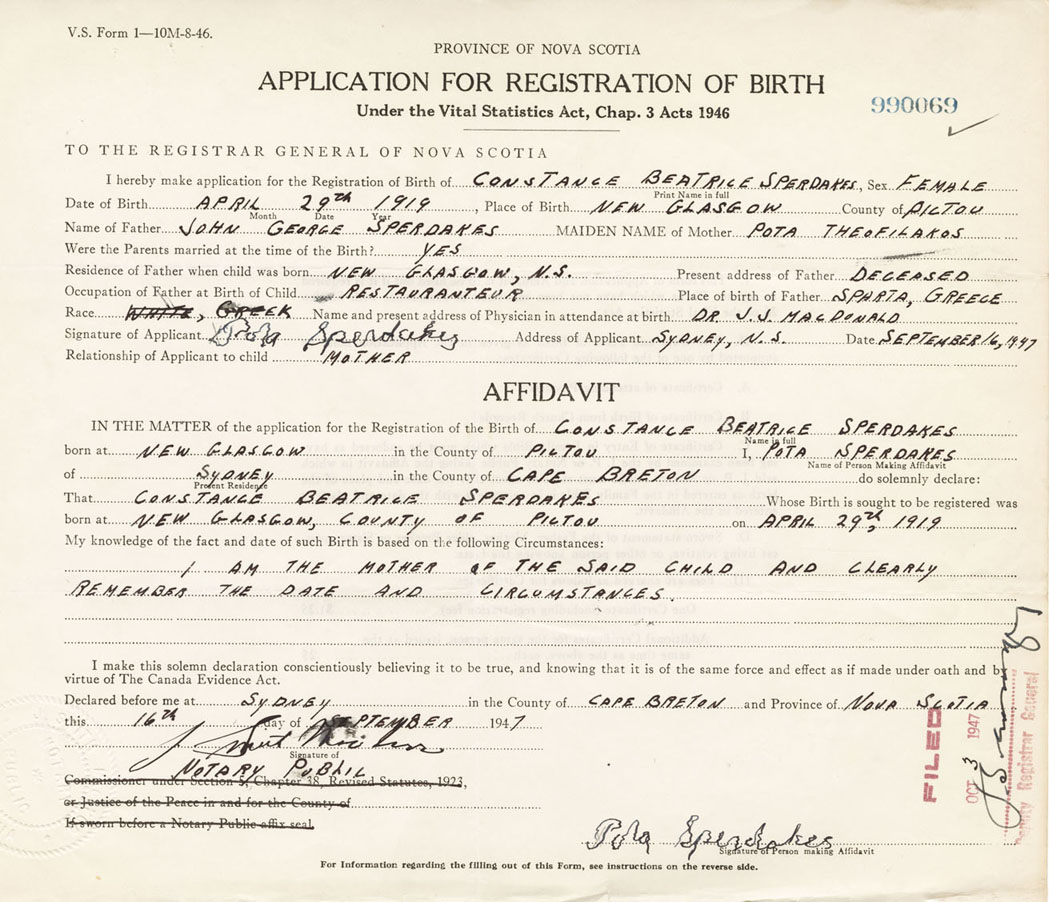 V.S. Form 1—10M-8-46.
PROVINCE OF NOVA SCOTIA
APPLICATION FOR REGISTRATION OF BIRTH
Under the Vital Statistics Act, Chap. 3 Acts 1946
990069
TO THE REGISTRAR GENERAL OF NOVA SCOTIA
I hereby make application for the Registration of Birth of CONSTANCE BEATRICE SPERDAKES, Sex FEMALE
Print Name in full
Date of Birth APRIL 29th 1919, Place of Birth NEW GLASGOW County of PICTOU
Month Date Year
Name of Father JOHN GEORGE SPERDAKES MAIDEN NAME of Mother POTA THEOFILAKOS
Were the Parents married at the time of the Birth? YES
Residence of Father when child was born NEW GLASGOW, N.S. Present address of Father DECEASED
Occupation of Father at Birth of Child RESTAURANTEUR Place of birth of Father SPARTA, GREECE
Race WHITE, GREEK Name and present address of Physician in attendance at birth DR. J.J. MACDONALD
Signature of Applicant Pota Sperdakes Address of Applicant SYDNEY, N.S. Date SEPTEMBER 16, 1947
Relationship of Applicant to child MOTHER
AFFIDAVIT
IN THE MATTER of the application for the Registration of the Birth of CONSTANCE BEATRICE SPERDAKES
Name in full
born at NEW GLASGOW in the County of PICTOU I, POTA SPERDAKES
Name of Person Making Affidavit
of SYDNEY in the County of CAPE BRETON do solemnly declare:
Present Residence
That CONSTANCE BEATRICE SPERDAKES Whose Birth is sought to be registered was
born at NEW GLASGOW, COUNTY OF PICTOU on APRIL 29th, 1919
My knowledge of the fact and date of such Birth is based on the following Circumstances:
I AM THE MOTHER OF THE SAID CHILD AND CLEARLY
REMEMBER THE DATE AND CIRCUMSTANCES.
I make this solemn declaration conscientiously believing it to be true, and knowing that it is of the same force and effect as if made under oath and by
virtue of The Canada Evidence Act.
Declared before me at SYDNEY in the County of CAPE BRETON and Province of NOVA SCOTIA
this 16th day of SEPTEMBER 1947
Signature of
NOTARY PUBLIC
Commissioner under Section 5, Chapter 38, Revised Statutes, 1923,
or Justice of the Peace in and for the County of
If sworn before a Notary Public affix seal.
FILED
OCT 3 1947
Deputy Registrar General
Pota Sperdakes
Signature of Person making Affidavit
For Information regarding the filling out of this Form, see instructions on the reverse side.